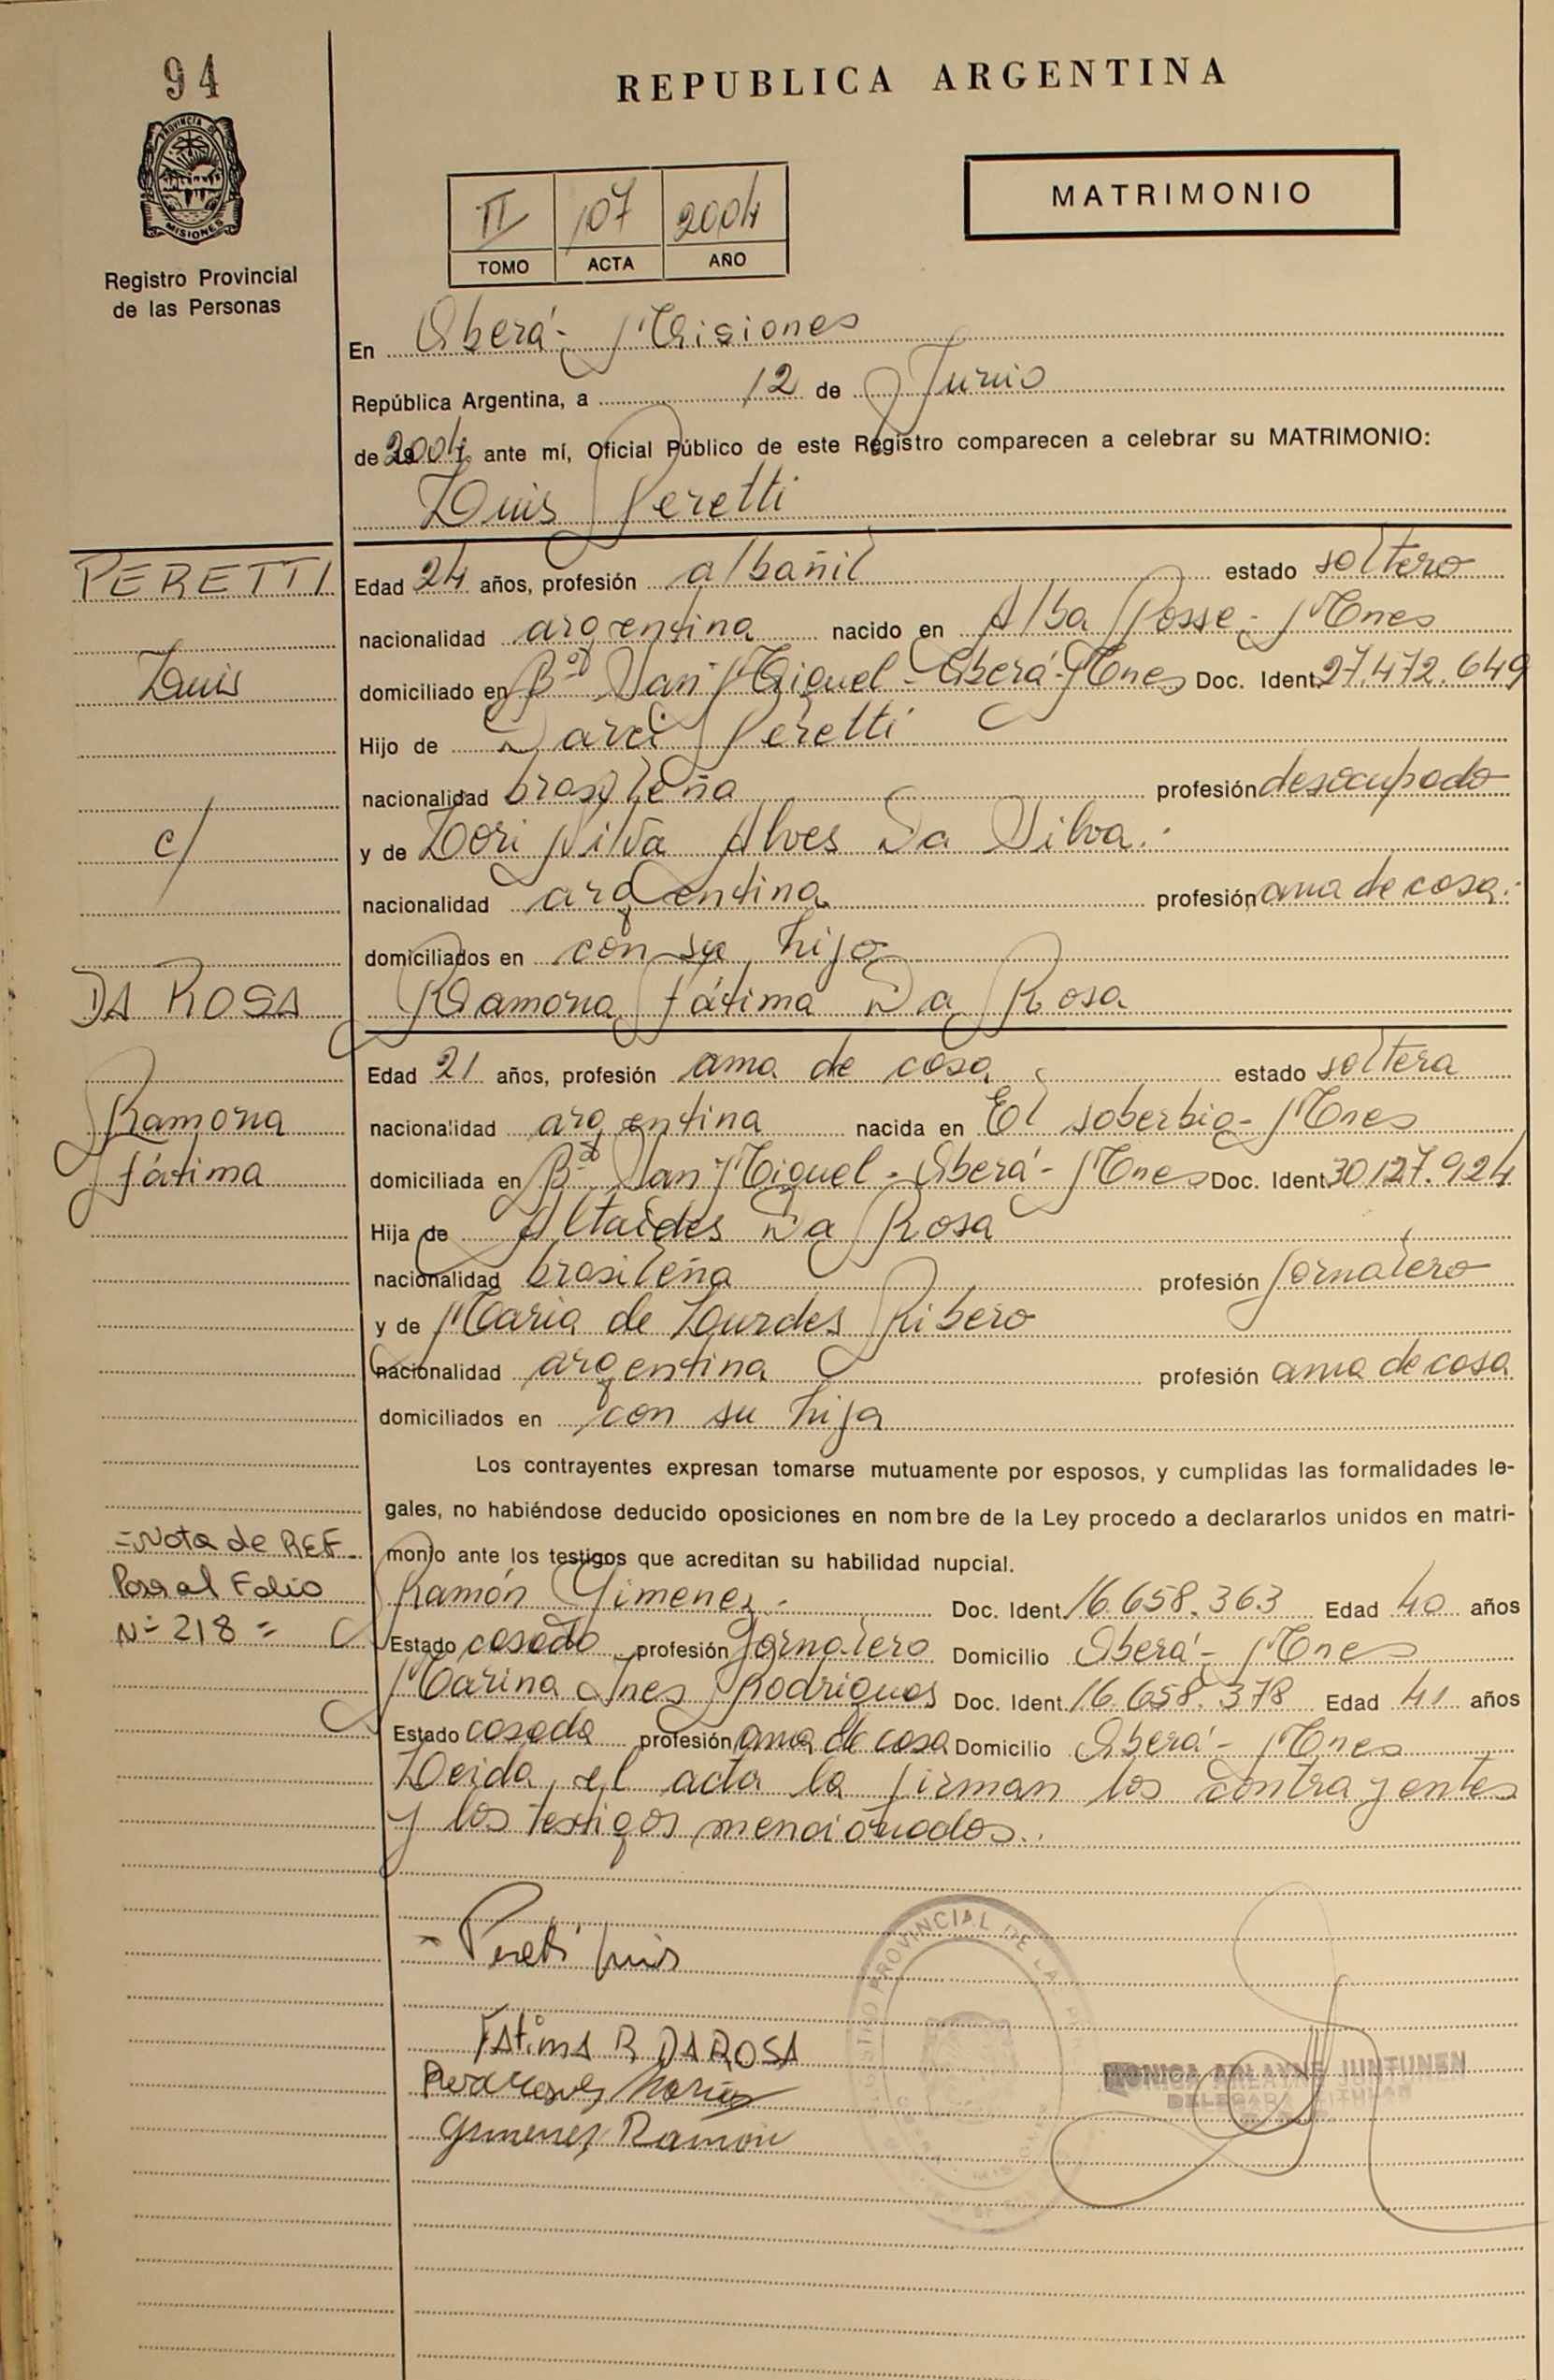 94
REPUBLICA ARGENTINA
PROVINCIA DE
MISIONES
Registro Provincial
de las Personas
II 107 2004
TOMO ACTA AÑO
MATRIMONIO
En Oberá - Misiones
República Argentina, a 12 de Junio
de 2004 ante mí, Oficial Público de este Registro comparecen a celebrar su MATRIMONIO:
Luis Peretti
PERETTI
Luis
c/
DA ROSA
Ramona
Fátima
Edad 24 años, profesión albañil estado soltero
nacionalidad argentina nacido en Alba Posse - Mnes
domiciliado en Bº San Miguel - Oberá - Mnes Doc. Ident. 27.472.649
Hijo de Darci Peretti
nacionalidad brasileña profesión desocupado
y de Lori Silva Alves Da Silva.
nacionalidad argentina profesión ama de casa.
domiciliados en con su hijo
Ramona Fátima Da Rosa
Edad 21 años, profesión ama de casa estado soltera
nacionalidad argentina nacida en El soberbio - Mnes
domiciliada en Bº San Miguel - Oberá - Mnes Doc. Ident. 30127.924
Hija de Altaides Da Rosa
nacionalidad brasileña profesión jornalero
y de Maria de Lourdes Ribero
nacionalidad argentina profesión ama de casa
domiciliados en con su hija
Los contrayentes expresan tomarse mutuamente por esposos, y cumplidas las formalidades le-
gales, no habiéndose deducido oposiciones en nombre de la Ley procedo a declararlos unidos en matri-
monio ante los testigos que acreditan su habilidad nupcial.
=Nota de REF.
Pasa al Folio
Nº 218 =
Ramón Gimenez.- Doc. Ident. 16.658.363 Edad 40 años
Estado casado profesión jornalero Domicilio Oberá - Mnes
Marina Ines Rodriguez Doc. Ident. 16.658.378 Edad 41 años
Estado casada profesión ama de casa Domicilio Oberá - Mnes
Leida el acta la firman los contrayentes
y los testigos mencionados.
Pereti Luis
Fatima R DA ROSA
Gimenez Ramon
REGISTRO PROVINCIAL DE LA
MONICA ARLAYNE JUNTUNEN
DELEGADA TITULAR